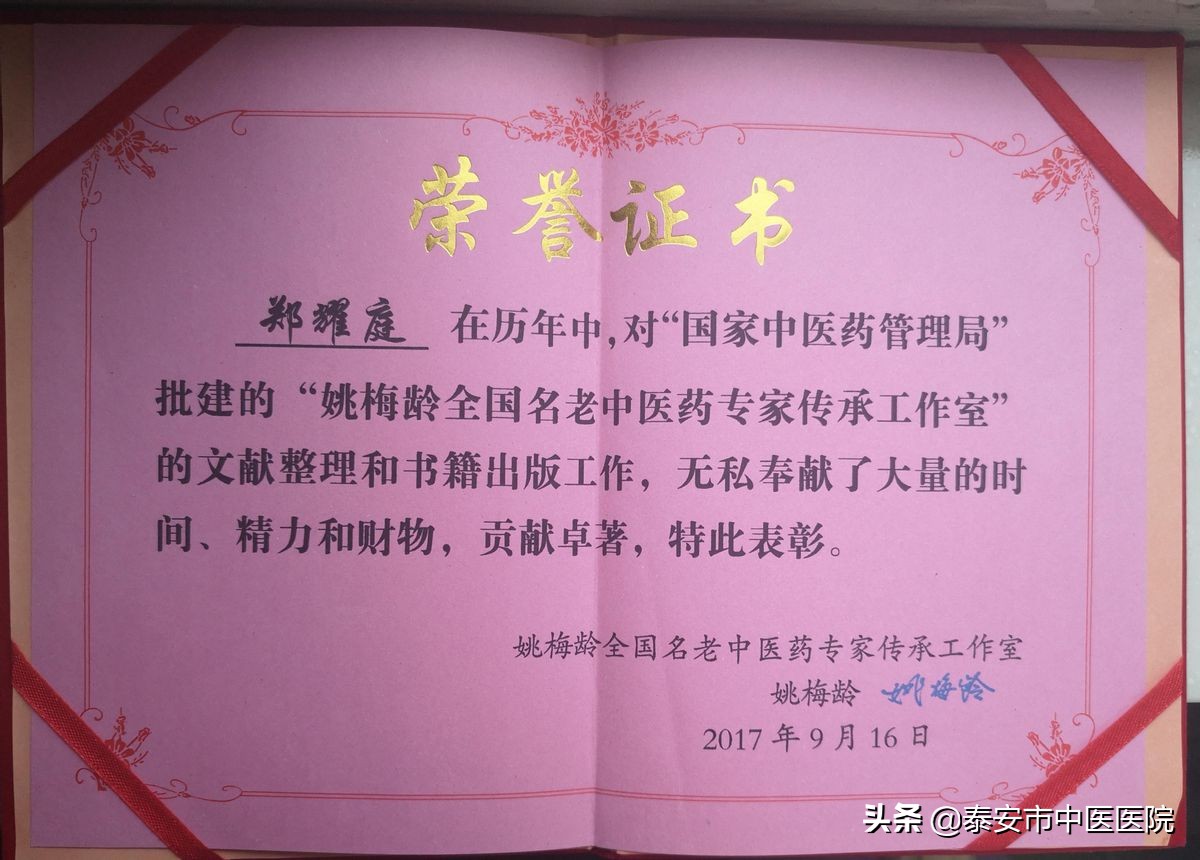 荣誉证书
郑耀庭 在历年中,对“国家中医药管理局”
批建的“姚梅龄全国名老中医药专家传承工作室”
的文献整理和书籍出版工作，无私奉献了大量的时
间、精力和财物，贡献卓著，特此表彰。
姚梅龄全国名老中医药专家传承工作室
姚梅龄 姚梅龄
2017年9月16日
头条 @泰安市中医医院